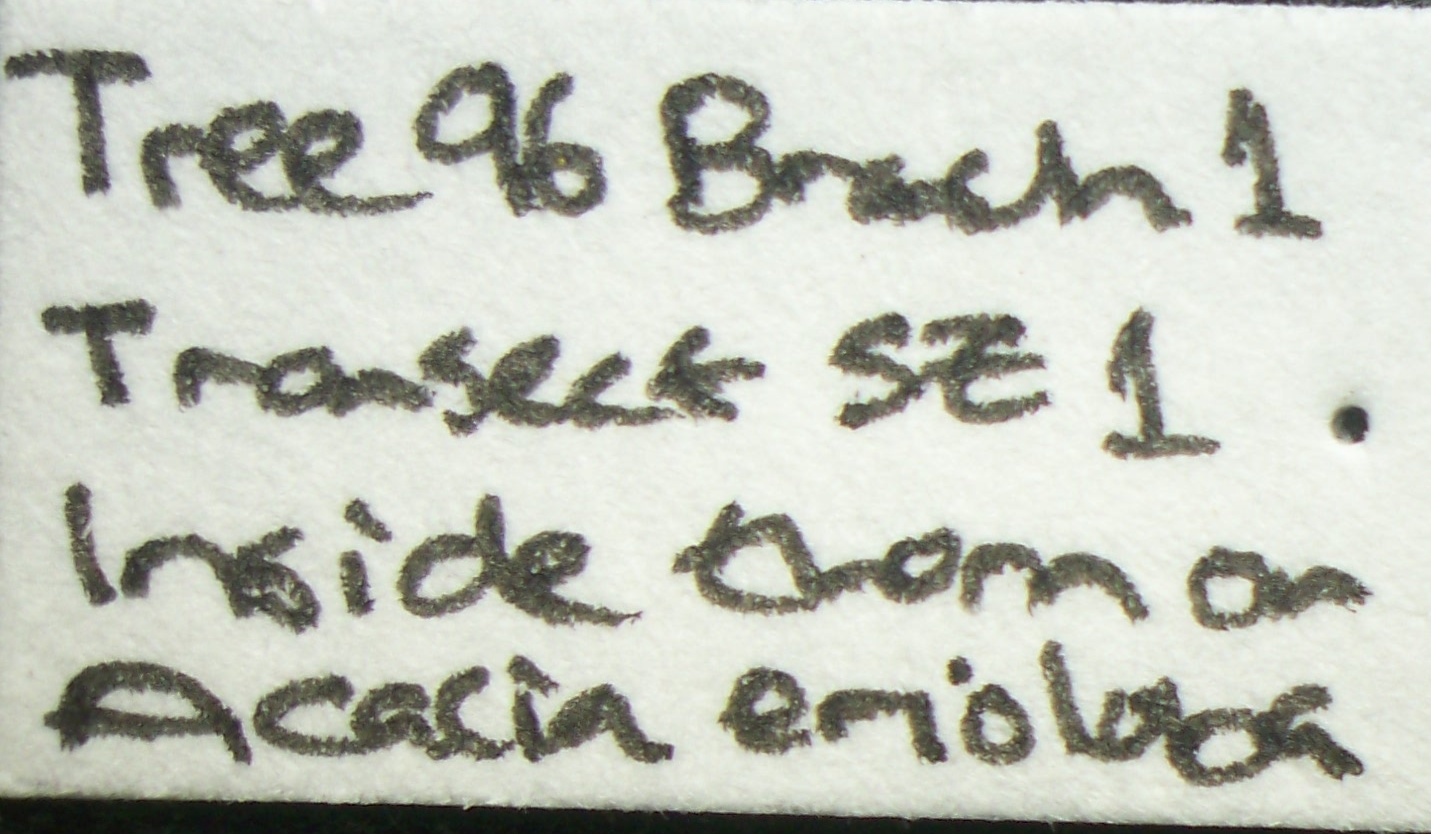 Tree 96 Brach 1
Transect SE 1
Inside thorn on
Acacia erioloba